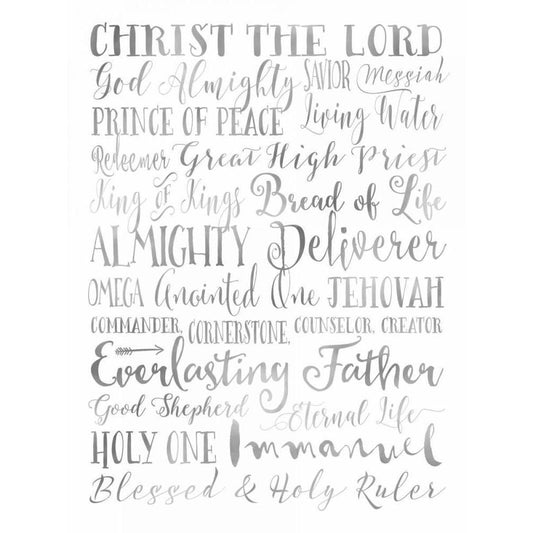 CHRIST THE LORD
God Almighty SAVIOR Messiah
PRINCE OF PEACE Living Water
Redeemer Great High Priest
King of Kings Bread of Life
ALMIGHTY Deliverer
OMEGA Anointed One JEHOVAH
COMMANDER, CORNERSTONE, COUNSELOR, CREATOR
Everlasting Father
Good Shepherd Eternal Life
HOLY ONE Immanuel
Blessed & Holy Ruler